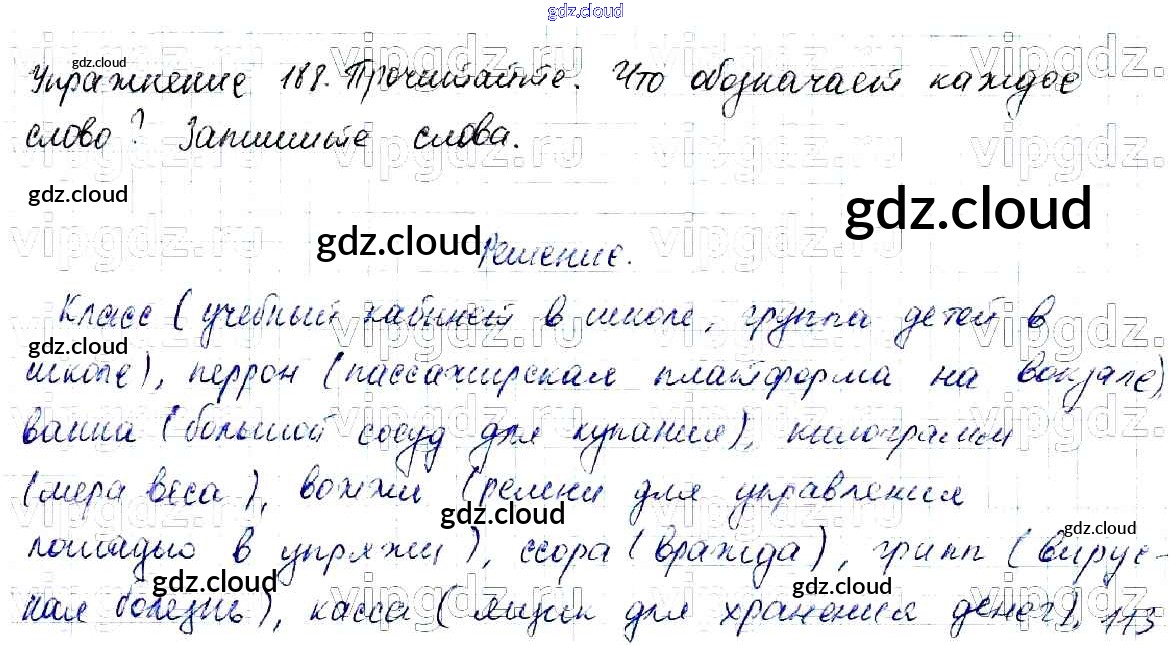 gdz.cloud
gdz.cloud
Упражнение 188. Прочитайте. Что обозначает каждое
слово? Запишите слова.
gdz.cloud
gdz.cloud
gdz.cloud
Решение.
Класс (учебный кабинет в школе, группа детей в
gdz.cloud
школе), перрон (пассажирская платформа на вокзале),
ванна (большой сосуд для купания), килограмм
(мера веса), вожжи (ремни для управления
gdz.cloud
gdz.cloud
лошадью в упряжи), ссора (вражда), грипп (вирус-
gdz.cloud
gdz.cloud
ная болезнь), касса (ящик для хранения денег), 115
gdz.cloud
vipgdz.ru